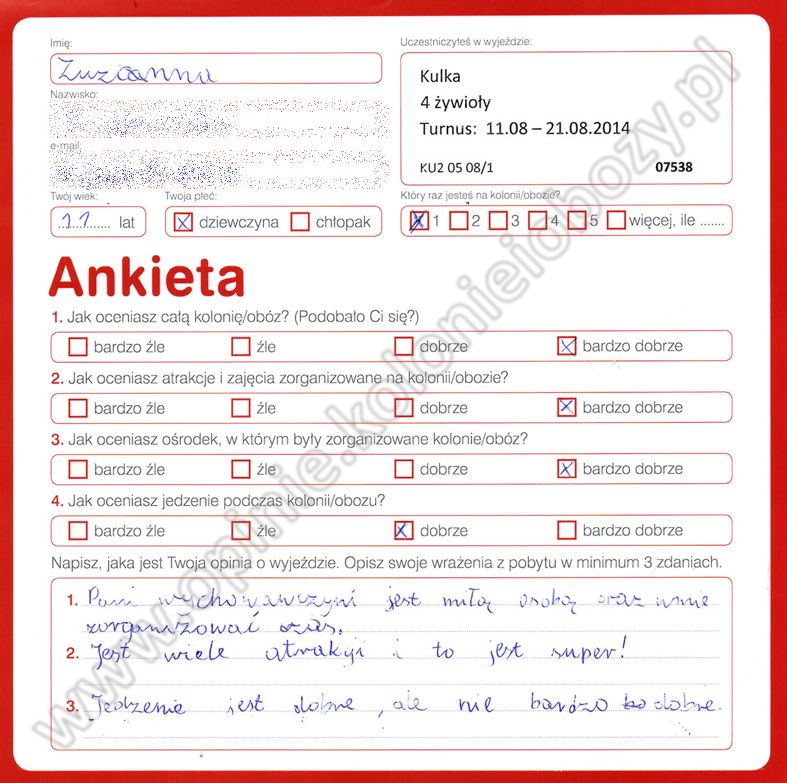 Imię:
Zuzanna
Uczestniczyłeś w wyjeździe:
Kulka
4 żywioły
Turnus: 11.08 – 21.08.2014
KU2 05 08/1 07538
Nazwisko:
e-mail:
Twój wiek:
11 lat
Twoja płeć:
dziewczyna chłopak
Który raz jesteś na kolonii/obozie?
1 2 3 4 5 więcej, ile .......
Ankieta
1. Jak oceniasz całą kolonię/obóz? (Podobało Ci się?)
bardzo źle źle dobrze bardzo dobrze
2. Jak oceniasz atrakcje i zajęcia zorganizowane na kolonii/obozie?
bardzo źle źle dobrze bardzo dobrze
3. Jak oceniasz ośrodek, w którym były zorganizowane kolonie/obóz?
bardzo źle źle dobrze bardzo dobrze
4. Jak oceniasz jedzenie podczas kolonii/obozu?
bardzo źle źle dobrze bardzo dobrze
Napisz, jaka jest Twoja opinia o wyjeździe. Opisz swoje wrażenia z pobytu w minimum 3 zdaniach.
1. Pani wychowawczyni jest miłą osobą oraz umie
zorganizować czas.
2. Jest wiele atrakcji i to jest super!
3. Jedzenie jest dobre, ale nie bardzo dobre.
www.opinie.kolonieiobozy.pl